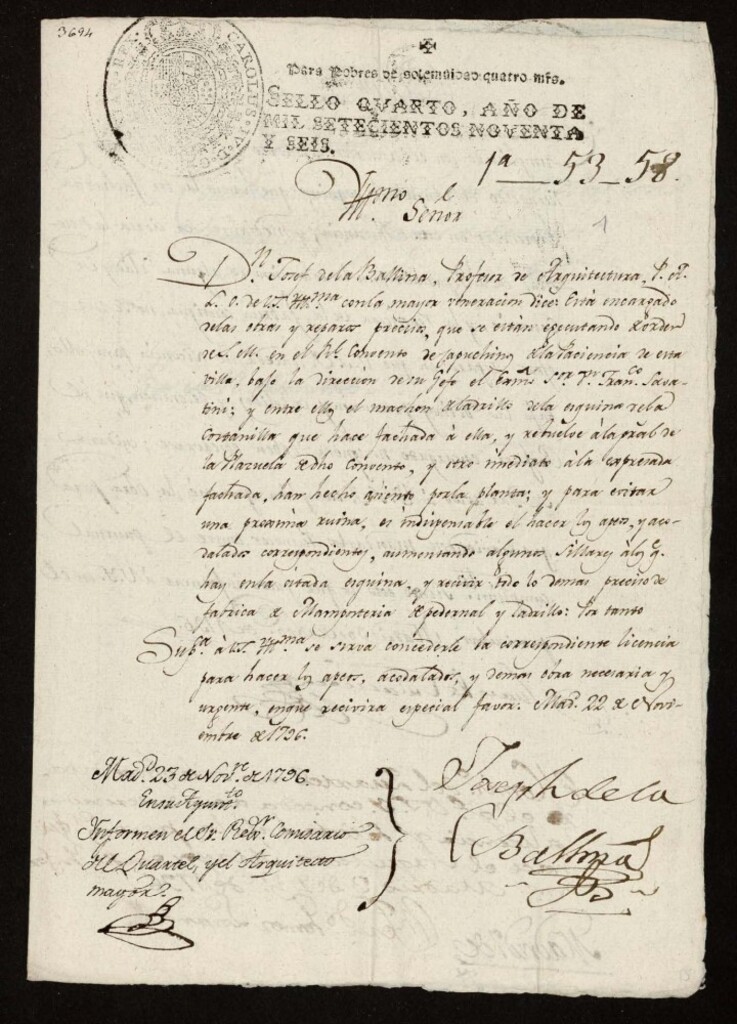 3694
CAROLUS IV D
✠
Para Pobres de solemnidad quatro mrs.
SELLO QVARTO, AÑO DE
MIL SETECIENTOS NOVENTA
Y SEIS.
1ª — 53 — 58.
Yllmo Señor
1
Dn. Josef de la Ballina, Profesor de Arquitectura, P. A.
L. P. de V.S. Yllma con la mayor veneracion dice: Està encargado
de las obras y reparos precisos, que se están executando de orden
de S. M. en el Rl. Convento de Capuchinos de la Paciencia de esta
villa, bajo la direccion de su Gefe el Exmo. Sor. Dn. Franco. Sava-
tini; y entre ellos el machon de ladrillo de la esquina de la
Costanilla que hace fachada à ella, y rebuelve à la pral de
la Plazuela de dho Convento, y otro imediato à la expresada
fachada, han hecho asiento por la planta; y para evitar
una proxima ruina, es indispensable el hacer los apeos, y aco-
dalados correspondientes, aumentando algunos Sillares à los q.
hay en la citada esquina, y recivir todo lo demas preciso de
fabrica de Mamposteria de pedernal y ladrillo: Por tanto
Suppca. à V.S. Yllma se sirva concederle la correspondiente licencia
para hacer los apeos, acodalados, y demas obra necesaria y
urgente, en que recivira especial favor. Mad. 22 de Novi-
embre de 1796.
Madd. 23 de Novre. de 1796.
En su Ayunto.
Informen el Sr. Redor. Comisario
del Quartel, y el Arquitecto
mayor.
Joseph de la
Ballina